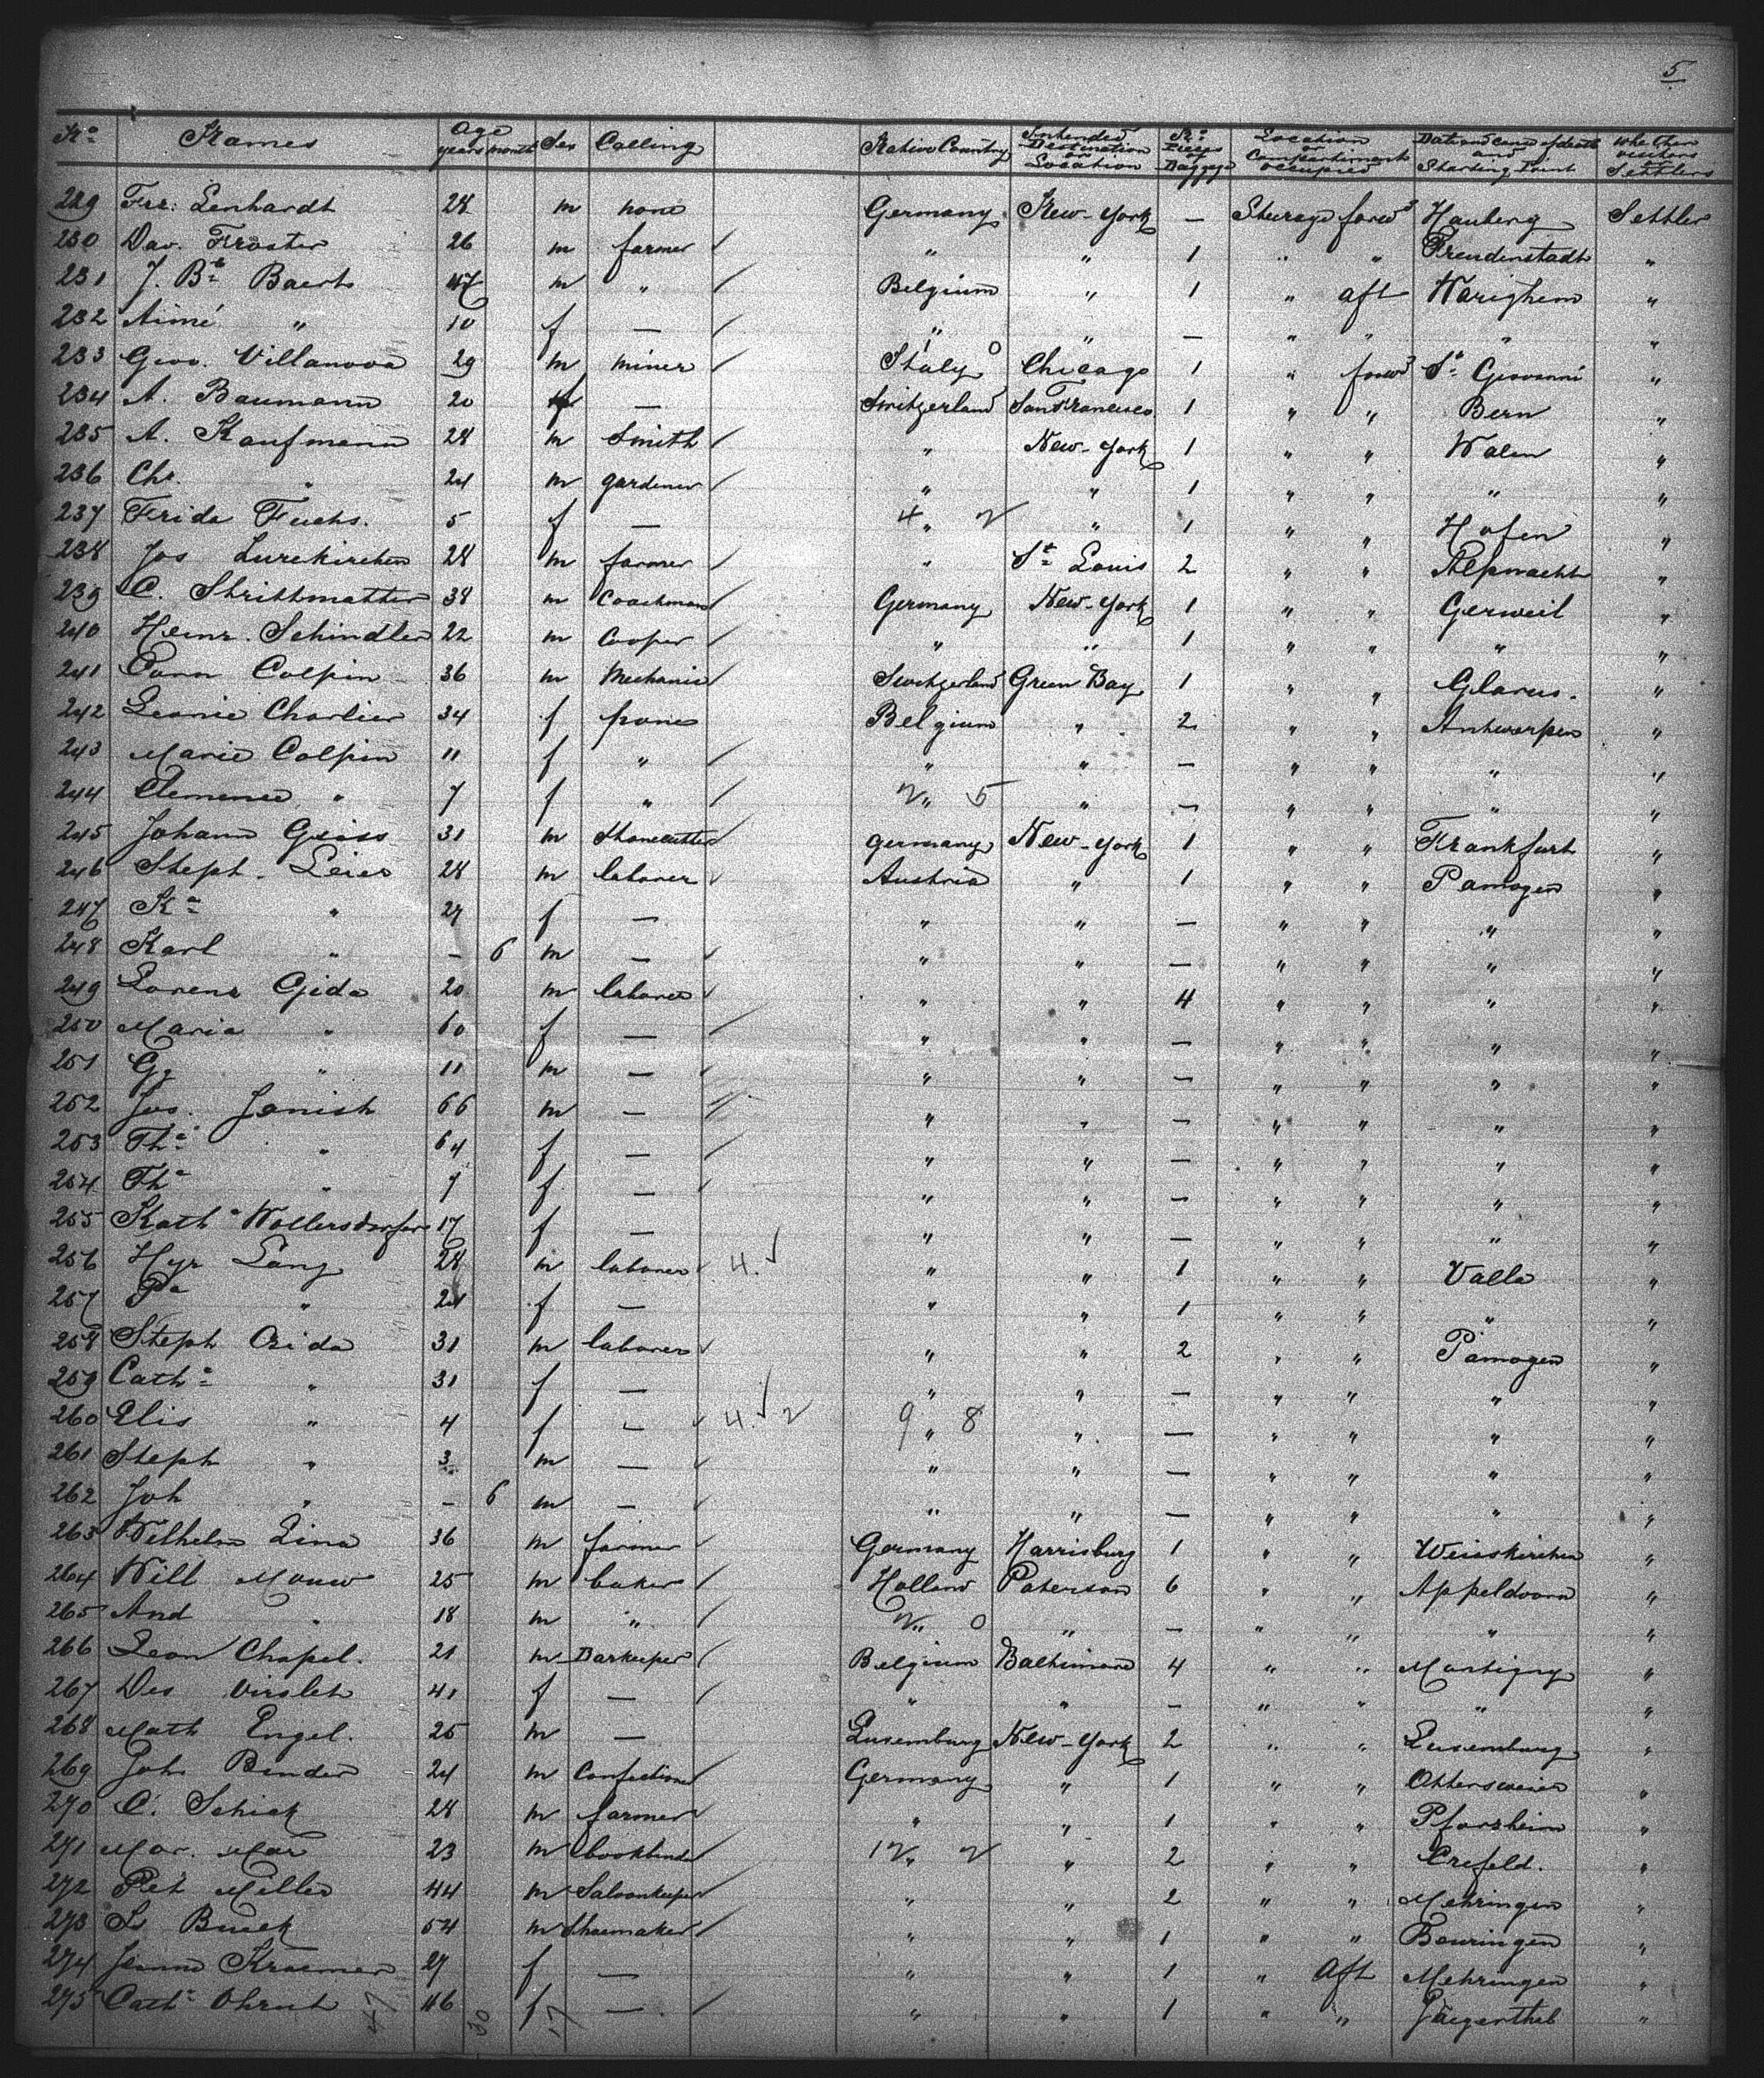 5
No Names Age years months Sex Calling Native Country Intended Destination or Location No Pieces of Baggage Location or Compartment occupied Date and cause of death and Starting Point Whether visitors or Settlers
229 Frz. Lenhardt 28 m none Germany New-York — Steerage forwd Hauberg Settler
230 Dav. Froster 26 m farmer / " " 1 " " Freudenstadt "
231 J. Bte Baerts 47 m " / Belgium " 1 " aft Warighem "
232 Aimé " 10 f — / " " — " " " "
233 Giov. Villanova 29 m miner / Italy Chicago 1 " forwd St Giovanni "
234 A. Baumann 20 f — Switzerland San Francisco 1 " " Bern "
235 A. Kaufmann 28 m Smith / " New-York 1 " " Walen "
236 Chr. " 24 m gardener / " " 1 " " " "
237 Frida Fuchs. 5 f — 4 " 2 " 1 " " Hofen "
238 Jos Lurckirchen 28 m farmer / " St Louis 2 " " Alpnacht "
239 C. Strittmatter 38 m Coachman / Germany New-York 1 " " Gerweil "
240 Heinr. Schindler 22 m Cooper / " " 1 " " " "
241 Conn Colpin 36 m Mechanic / Switzerland Green Bay 1 " " Glarus. "
242 Leonie Charlier 34 f none Belgium " 2 " " Antwerpen "
243 Marie Colpin 11 f " / " " — " " " "
244 Clemence " 7 f " / 2 " 5 " — " " " "
245 Johann Geiss 31 m Stonecutter / Germany New-York 1 " " Frankfurt "
246 Steph. Leier 28 m laborer / Austria " 1 " " Pamogen "
247 Ka " 27 f — " " — " " " "
248 Karl " — 6 m — / " " — " " " "
249 Lorenz Gida 20 m laborer / " " 4 " " " "
250 Maria " 60 f — / " " — " " " "
251 Gg " 11 m — / " " — " " " "
252 Jos. Janish 66 m — " " — " " " "
253 Tha " 64 f — / " " — " " " "
254 Tha " 7 f — / " " — " " " "
255 Katha Wollersdorfer 17 f — " " — " " " "
256 Hyr Lang 28 m laborer 4. / " " 1 " " Valla "
257 Pa " 24 f — " " 1 " " " "
258 Steph Crida 31 m laborer / " " 2 " " Pamogen "
259 Catha " 31 f — " " — " " " "
260 Elis " 4 f — / 4. / 2 9 " 8 " — " " " "
261 Steph " 3 m — / " " — " " " "
262 Joh " — 6 m — / " " — " " " "
263 Wilhelm Lina 36 m farmer / Germany Harrisburg 1 " " Weisskirchen "
264 Will Mouw 25 m baker / Holland Paterson 6 " " Appeldoorn "
265 And " 18 m " / 2 " 0 " — " " " "
266 Leon Chapel. 21 m Barkeeper / Belgium Baltimore 4 " " Martigny "
267 Des Virslet 41 f — / " " — " " " "
268 Math Engel. 25 m — Luxemburg New-York 2 " " Luxemburg "
269 Joh Binder 24 m Confectioner / Germany " 1 " " Ottersweier "
270 C. Schick 28 m farmer / " " 1 " " Pforzheim "
271 Mar. Mar 23 m bookbinder / 12 " 2 " 2 " " Crefeld. "
272 Pet Miller 44 m Saloonkeeper / " " 2 " " Mehringen "
273 L Bueck 54 m Shoemaker / " " 1 " " Beuringen "
274 Jeanne Kraemer 27 f — " " 1 " Aft Mehringen "
275 Catha Ohrut 46 f — / " " 1 " " Jaegerthal "
47 30 17